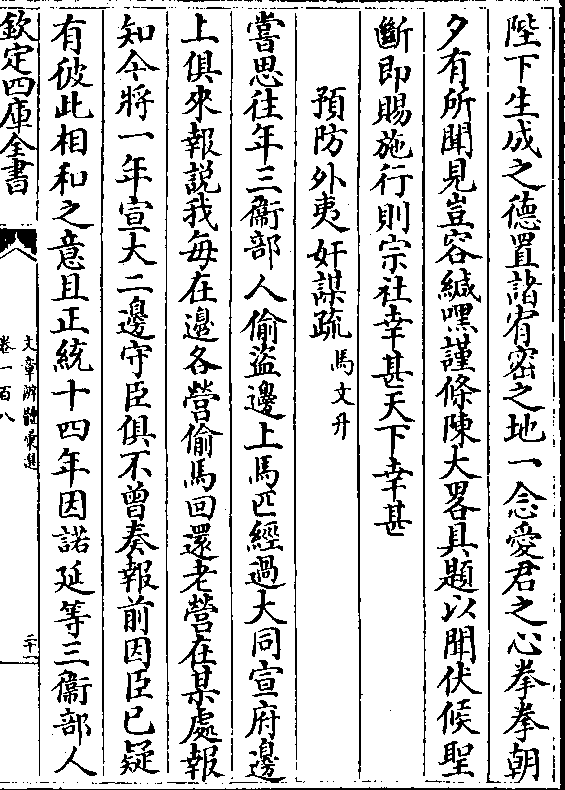 陛下生成之德置諸宥宻之地一念愛君之心拳拳朝
夕有所聞見豈容緘嘿謹條陳大畧具題以聞伏候聖
斷即賜施行則宗社幸甚天下幸甚
預防外夷奸謀疏馬文升
嘗思往年三衞部人偷盜邊上馬匹經過大同宣府邊
上俱來報説我每在邉各營偷馬回還老營在某處報
知今將一年宣大二邊守臣俱不曾奏報前因臣已疑
有彼此相和之意且正統十四年因諾延等三衞部人
欽定四庫全書
文章辨體彚選
卷一百八